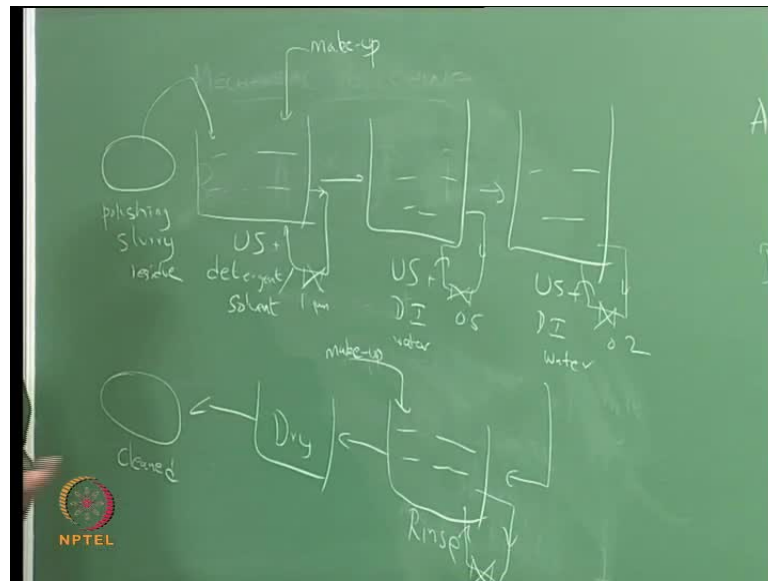 make-up
MECHANICAL
polishing
slurry
residue
US +
detergent/
solvent
1 μm
US +
DI
water
0.5
US +
DI
water
0.2
make-up
cleaned
Dry
Rinse
A
NPTEL